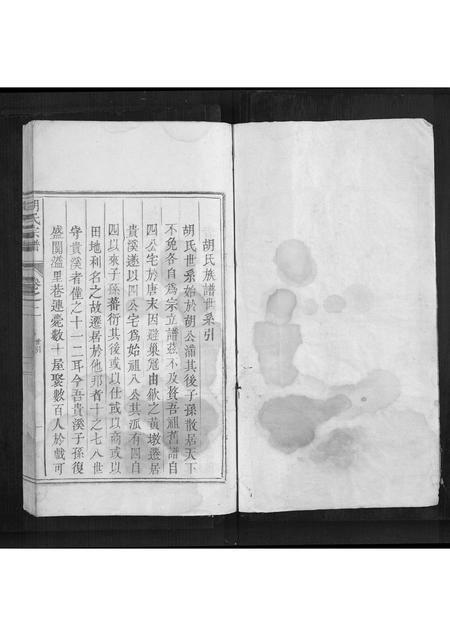 胡氏族譜世系引
胡氏世系始於胡公浦其後子孫散居天下
不免各自為宗立譜茲不及贅吾祖舊譜自
四公宅於唐末因避巢寇由歙之黃墩遷居
貴溪遂以四公宅為始祖八公其派有四自
四以來子孫蕃衍其後或以仕或以商或以
田地利名之故遷居於他郡者十之七八世
守貴溪者僅之十一二耳今吾貴溪子孫復
盛閭溢里巷連甍數十屋聚數百人於戲可
胡氏宗譜
卷之一
世引
一